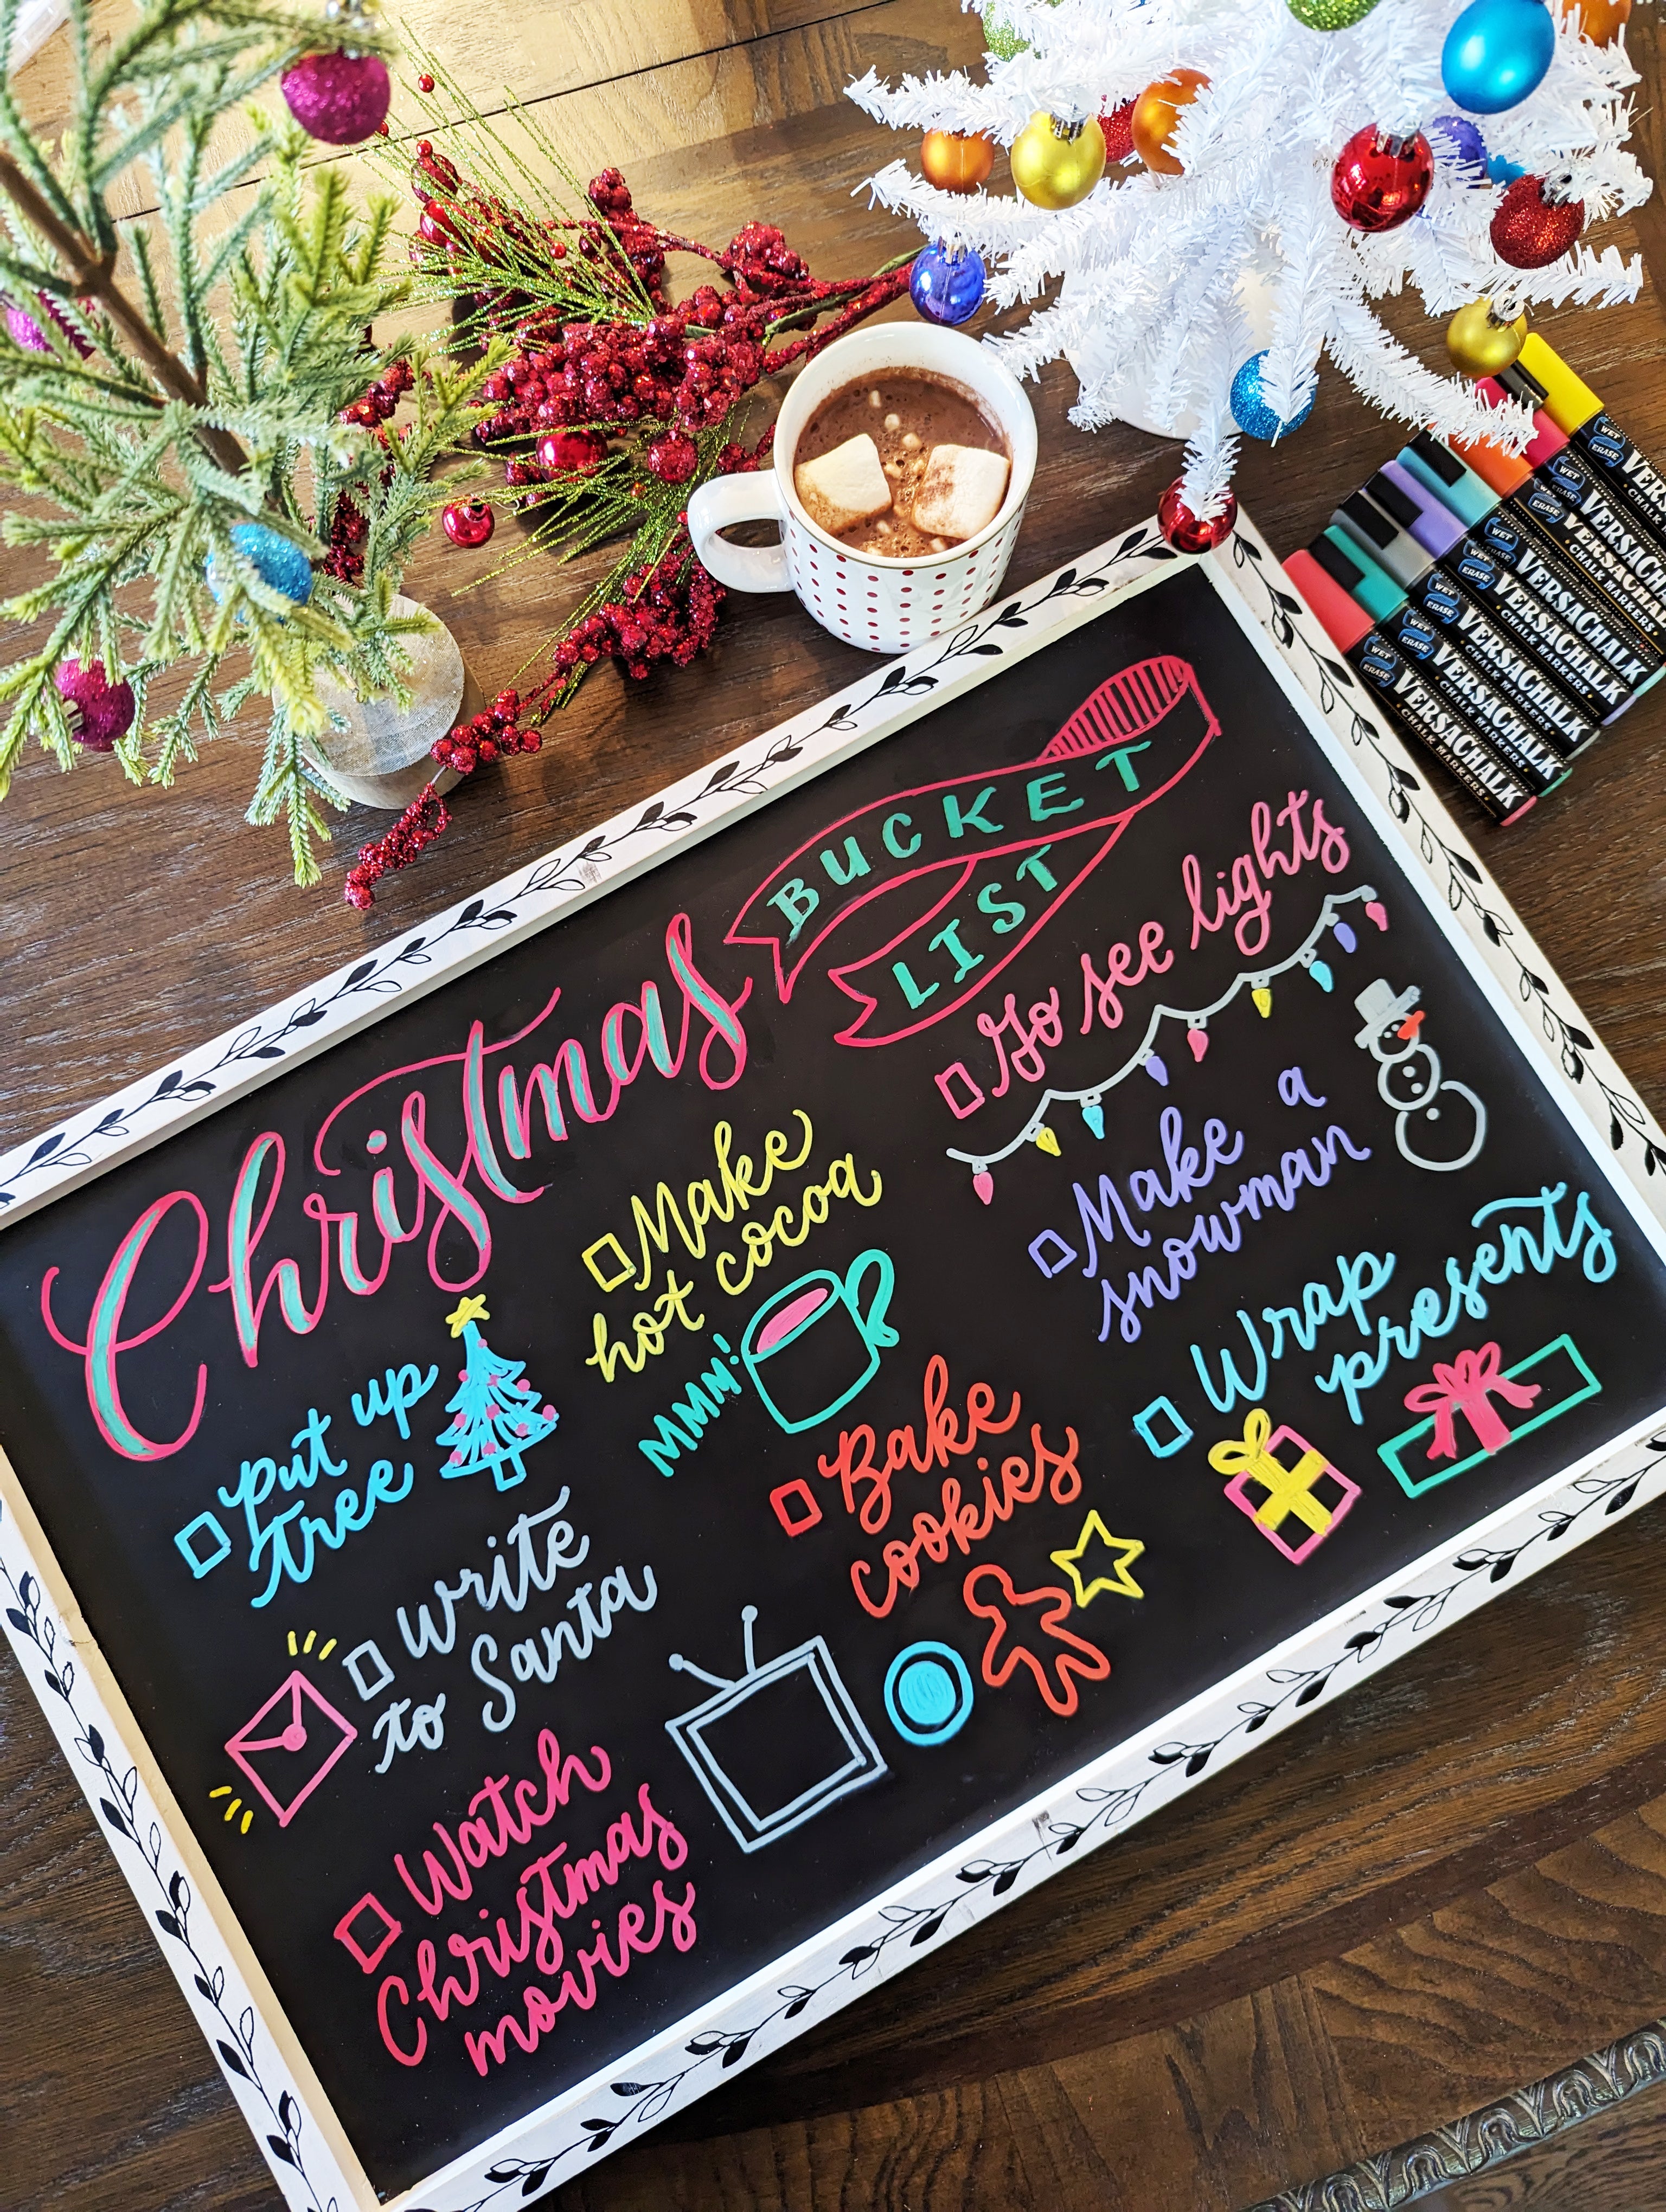 Christmas
BUCKET
LIST
Put up
tree
Write
to Santa
Watch
Christmas
movies
Make
hot cocoa
MMM!
Bake
cookies
Go see lights
Make a
snowman
Wrap
presents
WET
ERASE
VERSACHALK
CHALK MARKERS
WET
ERASE
VERSACHALK
CHALK MARKERS
WET
ERASE
VERSACHALK
CHALK MARKERS
WET
ERASE
VERSACHALK
CHALK MARKERS
WET
ERASE
VERSACHALK
CHALK MARKERS